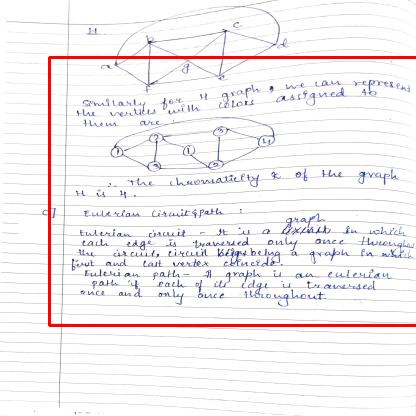 H.
b
c
a
d
g
f
e
Similarly for H graph, we can represent
the vertices with colors assigned to
them are :
1
2
1
3
4
3
2
∴ The chromaticity K of the graph
H is 4.
c] Eulerian Circuit & path :
graph
Eulerian circuit - It is a in which
each edge is traversed only once through
the circuit, circuit being a graph in which
first and last vertex coincide.
Eulerian path - A graph is an eulerian
path if each of its edge is traversed
once and only once throughout.